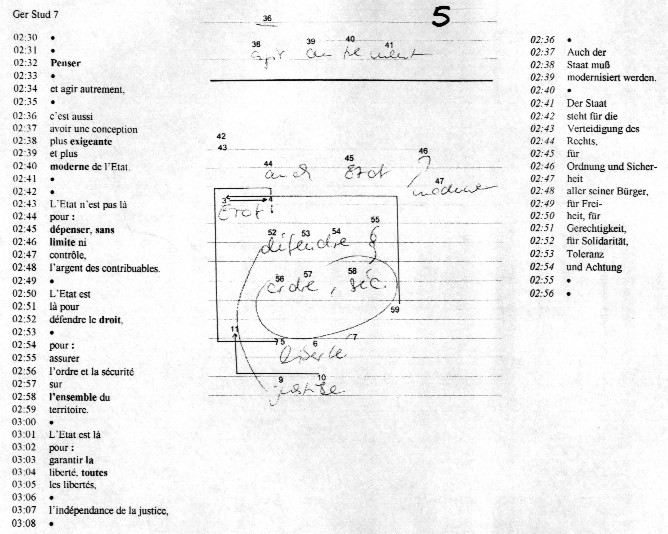 Ger Stud 7
02:30 •
02:31 •
02:32 Penser
02:33 •
02:34 et agir autrement,
02:35 •
02:36 c'est aussi
02:37 avoir une conception
02:38 plus exigeante
02:39 et plus
02:40 moderne de l'Etat.
02:41 •
02:42 •
02:43 L'Etat n'est pas là
02:44 pour :
02:45 dépenser, sans
02:46 limite ni
02:47 contrôle,
02:48 l'argent des contribuables.
02:49 •
02:50 L'Etat est
02:51 là pour
02:52 défendre le droit,
02:53 •
02:54 pour :
02:55 assurer
02:56 l'ordre et la sécurité
02:57 sur
02:58 l'ensemble du
02:59 territoire.
03:00 •
03:01 L'Etat est là
03:02 pour :
03:03 garantir la
03:04 liberté, toutes
03:05 les libertés,
03:06 •
03:07 l'indépendance de la justice,
03:08 •
5
36
38 39 40 41
agir
42
43
44 45 46
auch Etat
47
moderne
3 4
Etat :
52 53 54 55
défendre §
56 57 58
ordre, séc.
59
11
5 6 7
liberté
9 10
justice
02:36 •
02:37 Auch der
02:38 Staat muß
02:39 modernisiert werden.
02:40 •
02:41 Der Staat
02:42 steht für die
02:43 Verteidigung des
02:44 Rechts,
02:45 für
02:46 Ordnung und Sicher-
02:47 heit
02:48 aller seiner Bürger,
02:49 für Frei-
02:50 heit, für
02:51 Gerechtigkeit,
02:52 für Solidarität,
02:53 Toleranz
02:54 und Achtung
02:55 •
02:56 •